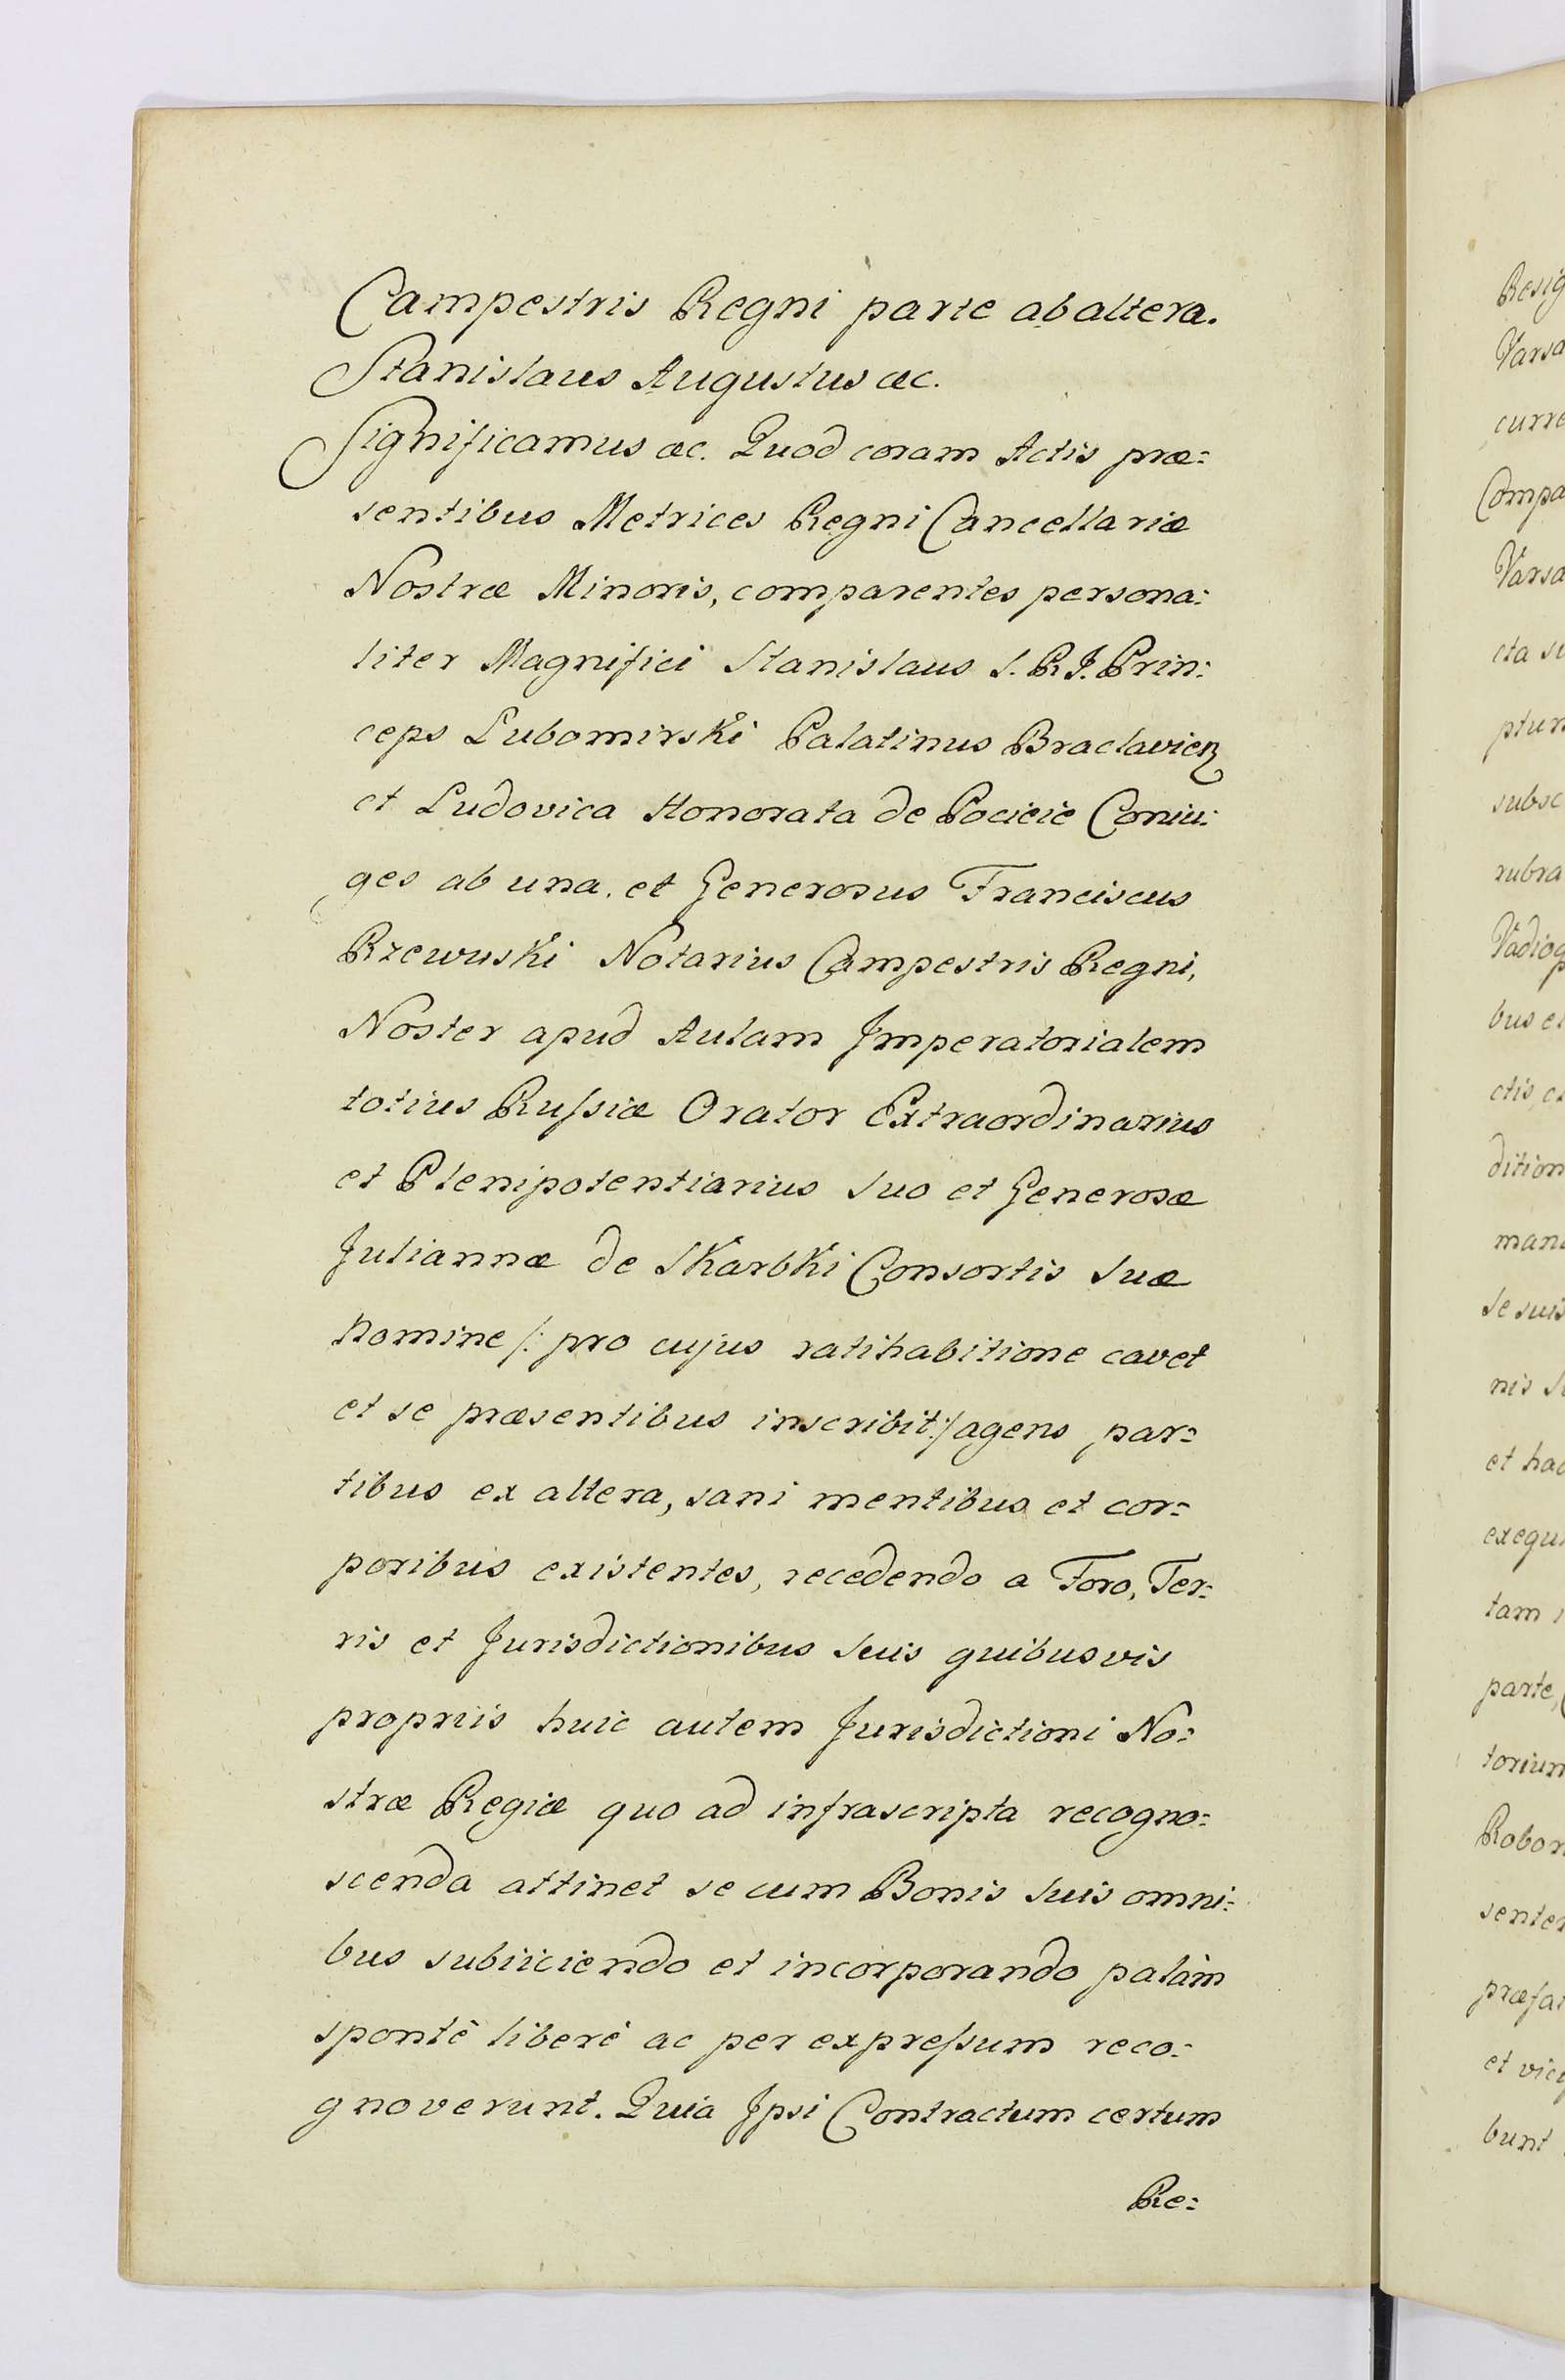 Campestris Regni parte ab altera.
Stanislaus Augustus &c.
Significamus &c. Quod coram Actis præ:
sentibus Metrices Regni Cancellariæ
Nostræ Minoris, comparentes persona:
liter Magnifici Stanislaus S. R. I. Prin:
ceps Lubomirski Palatinus Braclavien
et Ludovica Honorata de Pocieie Coniu:
ges ab una, et Generosus Franciscus
Rzewuski Notarius Campestris Regni,
Noster apud Aulam Imperatorialem
totius Russiæ Orator Extraordinarius
et Plenipotentiarius Suo et Generosæ
Juliannæ de Skarbki Consortis Suæ
Nomine /: pro cujus ratihabitione cavet
et se præsentibus inscribit :/ agens par:
tibus ex altera, sani mentibus et cor:
poribus existentes, recedendo a Foro, Ter:
ris et Jurisdictionibus Suis quibusvis
propriis huic autem Jurisdictioni No:
stræ Regiæ quo ad infrascripta recogno:
scenda attinet se cum Bonis Suis omni:
bus subiiciendo et incorporando palàm
spontè liberè ac per expressum reco:
gnoverunt. Quia Ipsi Contractum certum
Re:
Resig
Varsa
curre
Compa
Varsa
cta su
ptum
subsc
rubra
Vadioq
bus et
ctis, c
dition
mana
Se suis
nis S
et hac
exequ
tam i
parte,
torium
Robor
senter
præfat
et vic
bunt